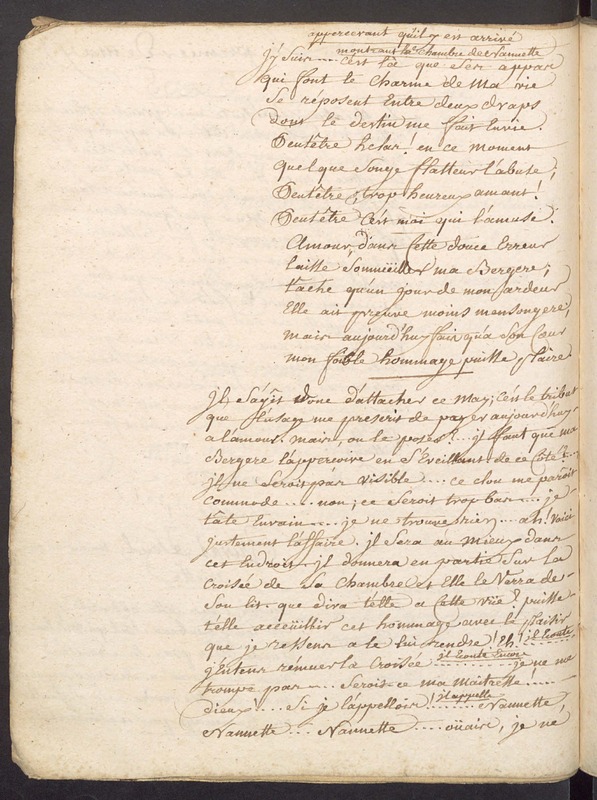 appercevant qu'il y est arrivé
montrant la Chambre de Nannette
J'y Suis ---- C'est là que Ses appas
qui font le Charme de Ma vie
Se réposent Entre deux draps
dont le destin me fait Envie.
Peutêtre helas! en ce moment
quelque Songe flatteur l'abuse;
Peutêtre, trop heureux amant!
Peutêtre C'est moi qui l'amuse.
Amour, dans Cette douce Erreur
laisse Sommëiller ma Bergere;
tache qu'un jour de mon ardeur
Elle ait preuve moins mensongere,
mais aujourd'huy fais qu'a Son Cœur
mon foible hommage puisse plaire.
Jl S'agit donc d'attacher ce May; C'en le tribut
que l'usage me prescrit de payer aujourd'huy
a l'amour. mais, ou le poser? ... il faut que ma
Bergere l'apperçoive en S'Eveillant de ce Coté
jl ne Seroit pas visible .... ce clou me paroit
commode ..... non; ce Seroit trop bas ---- je
tâte Envain ---- je ne trouve rien ... ah! voici
justement l'affaire. jl Sera au Mieux dans
cet Endroit. jl donnera en partie Sur la
Croisée de Sa Chambre et Elle le Verra de
Son lit. que dira t'elle a Cette vüe? puisse-
t'elle accëuillir cet hommage avec le plaisir
que je ressens a le lui rendre! Eh! jl Ecoute
j'Entens remuer la Croisée jl Ecoute Encore ........ je ne me
trompe pas ---- Seroit-ce ma Maitresse! ----
dieux! .... Si je l'appellois! jl appelle ...... Nannette,
Nannette .... Nannette ---- oüais, je ne